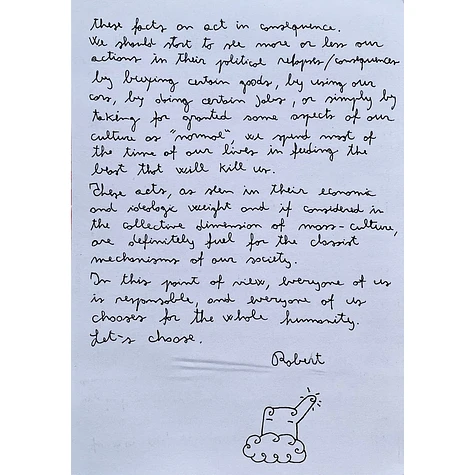 these facts an act in consequence.
We should start to see more or less our
actions in their political refopts/consequences
by buying certain goods, by using our
cars, by doing certain jobs, or simply by
taking for granted some aspects of our
culture as "normal" we spend most of
the time of our lives in feeding the
beast that will kill us.
These acts, as seen in their economic
and ideologic weight and if considered in
the collective dimension of mass-culture,
are definitely fuel for the classist
mechanisms of our society.
In this point of view, everyone of us
is responsable, and everyone of us
chooses for the whole humanity.
Let's choose.
Robert